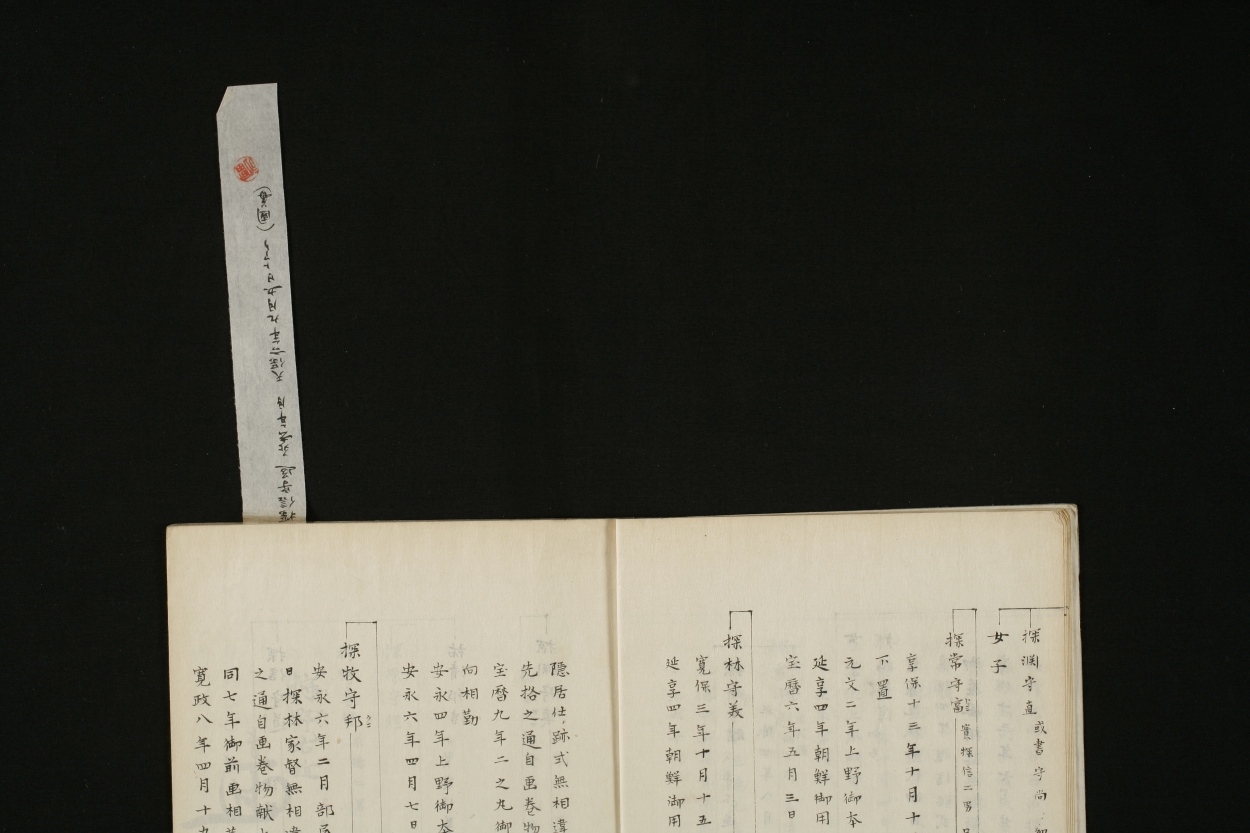 探淵守直
或書守尚
女子
探常守富
実探信二男
享保十三年十月十
下置
元文二年上野御本
延享四年朝鮮御用
宝暦六年五月三日
探林守美
寛保三年十月十五
延享四年朝鮮御用
隠居仕、跡式無相違
先格之通自画巻物
宝暦九年二之丸御
向相勤
安永四年上野御本
安永六年四月七日
探牧守邦
安永六年二月部屋
日探林家督無相違
之通自画巻物献上
同七年御前画相
寛政八年四月十九
探信守道 年月 天保六年九月五日トアリ